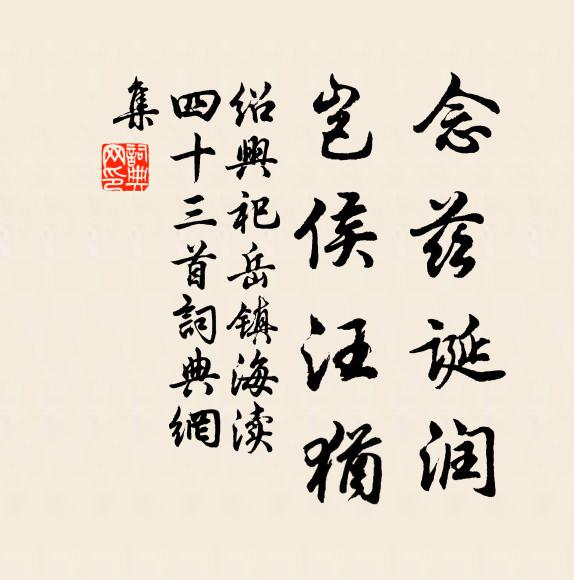 念兹诞润
岂侯汪犹
绍兴祀岳镇海渎
四十三首詞典網
集
詞典網印